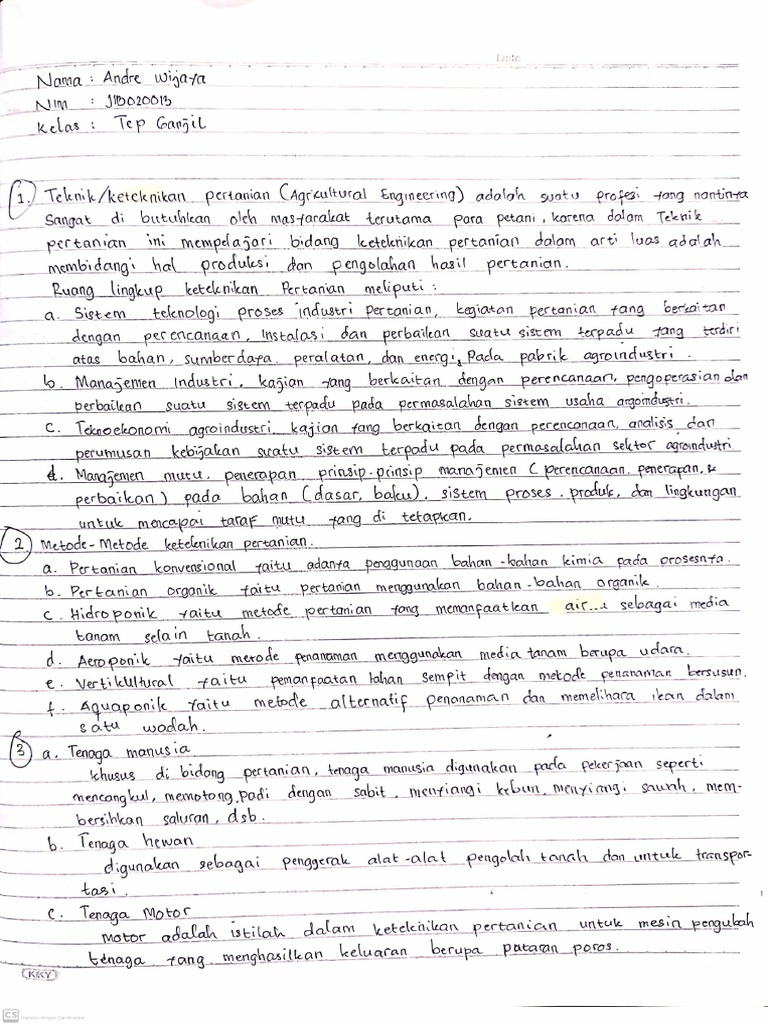 Date
Nama : Andre Wijaya
NIM : J1B020013
Kelas : Tep Ganjil
1. Teknik/keteknikan pertanian (Agricultural Engineering) adalah suatu profesi yang nantinya
Sangat di butuhkan oleh masyarakat terutama para petani, karena dalam Teknik
pertanian ini mempelajari bidang keteknikan pertanian dalam arti luas adalah
membidangi hal produksi dan pengolahan hasil pertanian.
Ruang lingkup keteknikan Pertanian meliputi :
a. Sistem teknologi proses industri pertanian, kegiatan pertanian yang berkaitan
dengan perencanaan, Instalasi dan perbaikan suatu sistem terpadu yang terdiri
atas bahan, sumberdaya, peralatan, dan energi, Pada pabrik agroindustri.
b. Manajemen Industri, kajian yang berkaitan dengan perencanaan, pengoperasian dan
perbaikan suatu sistem terpadu pada permasalahan sistem usaha argoindustri.
c. Teknoekonomi agroindustri, kajian yang berkaitan dengan perencanaan, analisis dan
perumusan kebijakan suatu sistem terpadu pada permasalahan sektor agroindustri
d. Manajemen mutu, penerapan prinsip-prinsip manajemen (perencanaan, penerapan, &
perbaikan) pada bahan (dasar, baku), sistem proses, produk, dan lingkungan
untuk mencapai taraf mutu yang di tetapkan.
2. Metode-Metode keteknikan pertanian.
a. Pertanian konvensional yaitu adanya penggunaan bahan-bahan kimia pada prosesnya.
b. Pertanian organik yaitu pertanian menggunakan bahan-bahan organik.
c. Hidroponik yaitu metode pertanian yang memanfaatkan air... sebagai media
tanam selain tanah.
d. Aeroponik yaitu metode penanaman menggunakan media tanam berupa udara.
e. Vertikultural yaitu pemanfaatan lahan sempit dengan metode penanaman bersusun.
f. Aquaponik yaitu metode alternatif penanaman dan memelihara ikan dalam
satu wadah.
3 a. Tenaga manusia
khusus di bidang pertanian, tenaga manusia digunakan pada pekerjaan seperti
mencangkul, memotong padi dengan sabit, menyiangi kebun, menyiangi sawah, mem-
bersihkan saluran, dsb.
b. Tenaga hewan
digunakan sebagai penggerak alat-alat pengolah tanah dan untuk transpor-
tasi.
c. Tenaga Motor
Motor adalah istilah dalam keteknikan pertanian untuk mesin pengubah
tenaga yang menghasilkan keluaran berupa putaran poros.
KKY
CS